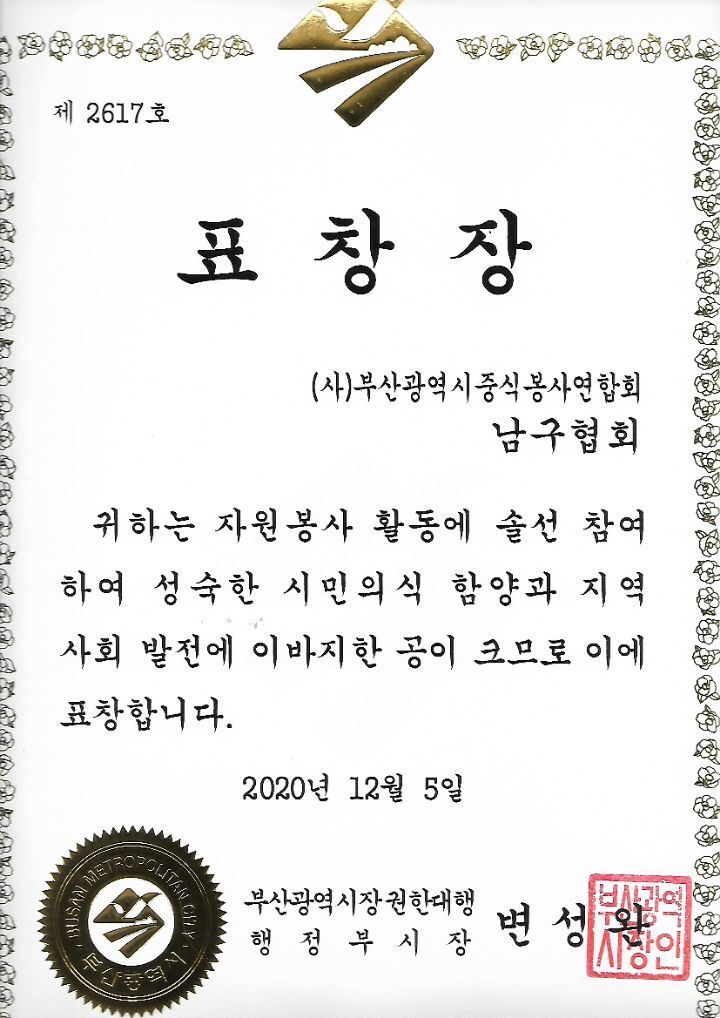 제 2617호
표 창 장
(사)부산광역시중식봉사연합회
남구협회
귀하는 자원봉사 활동에 솔선 참여
하여 성숙한 시민의식 함양과 지역
사회 발전에 이바지한 공이 크므로 이에
표창합니다.
2020년 12월 5일
BUSAN METROPOLITAN CITY
부산광역시
부산광역시장권한대행
행 정 부 시 장
변 성 완
부산광역
시장인